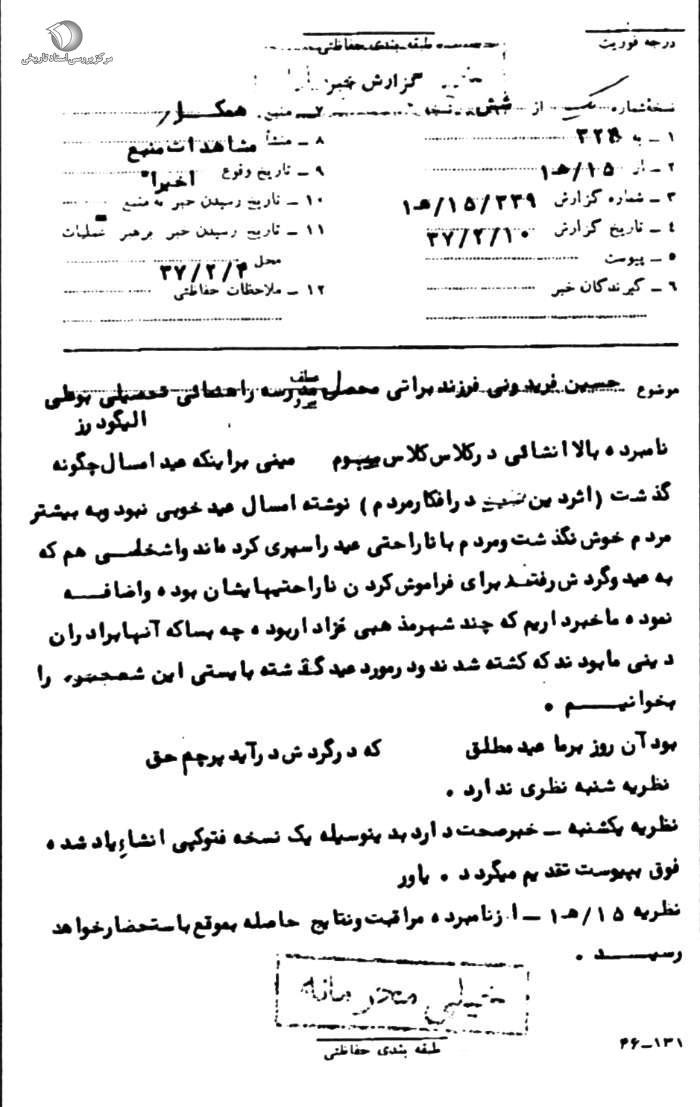 مرکز بررسی اسناد تاریخی
درجه فوریت
طبقه بندی حفاظتی
گزارش خبر
نسخه شماره یک از شش نسخه
۱ ـ به ۳۲۸
۲ ـ از ۱۵/هـ۱
۳ ـ شماره گزارش ۱۵/۳۳۹/هـ۱
۴ ـ تاریخ گزارش ۳۷/۲/۱۰
۵ ـ پیوست
۶ ـ گیرندگان خبر
۷ ـ منبع همکار
۸ ـ منشأ مشاهدات منبع
۹ ـ تاریخ وقوع اخیرا"
۱۰ ـ تاریخ رسیدن خبر به منبع
۱۱ ـ تاریخ رسیدن خبر برهبر عملیات
محل ۳۷/۲/۴
۱۲ ـ ملاحظات حفاظتی
موضوع حسین فریدونی فرزند براتی محصل مدرسه راهنمائی تحصیلی بوطی
الیگودرز
نامبرده بالا انشائی در کلاس کلاس سوم مبنی براینکه عید امسال چگونه
گذشت (اثر دین در افکار مردم) نوشته امسال عید خوبی نبود وبه بیشتر
مردم خوش نگذشت ومردم با ناراحتی عید را سپری کرده اند واشخاصی هم که
به عید وگردش رفتند برای فراموش کردن ناراحتیهایشان بوده واضافه
نموده ما خبر داریم که چند شهر مذهبی عزادار بوده چه بسا که آنها برادران
دینی ما بودند که کشته شدند ودرمورد عید گذشته بایستی این شعر را
بخوانیم .
بود آن روز برما عید مطلق که در گردش درآید پرچم حق
نظریه شنبه نظری ندارد .
نظریه یکشنبه ـ خبر صحت دارد بدینوسیله یک نسخه فتوکپی انشاء یاد شده
فوق بپیوست تقدیم میگردد . یاور
نظریه ۱۵/هـ۱ ـ از نامبرده مراقبت ونتایج حاصله بموقع باستحضار خواهد
رسید .
خیلی محرمانه
طبقه بندی حفاظتی
۱۳۱ـ۴۶